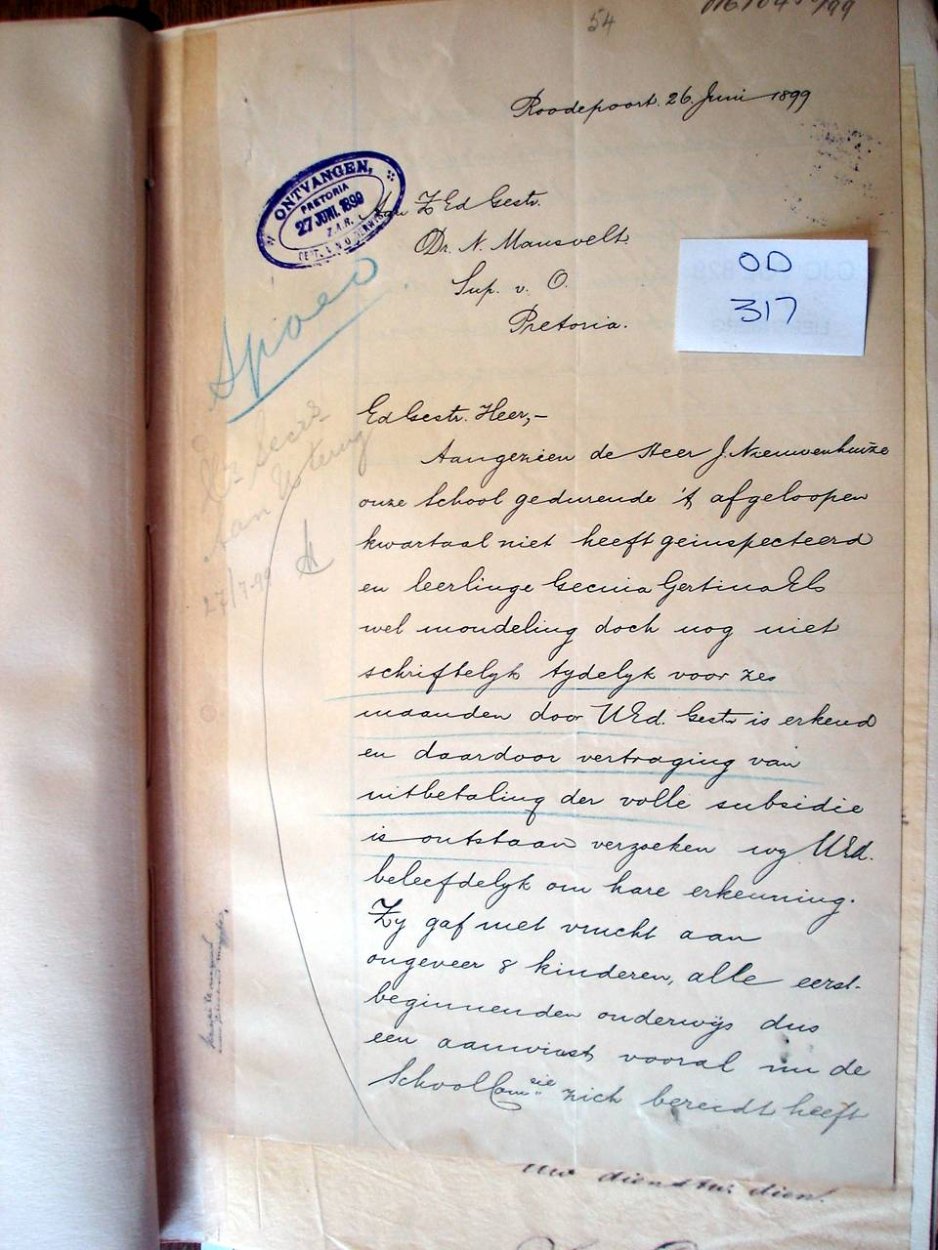 54
Roodepoort. 26 Juni 1899
ONTVANGEN,
PRETORIA
27 JUNI. 1899
Z.A.R.
Aan ZEd Gestr.
Dr. N. Mansvelt
Sup. v. O.
Pretoria.
OD
317
Spoed
27/7.99
EdGestr. Heer,-
Aangezien de Heer J. Nieuwenhuize
onze School gedurende 't afgeloopen
kwartaal niet heeft geinspecteerd
en leerlinge Gecina Gertina Els
wel mondeling doch nog niet
schriftelyk tydelyk voor zes
maanden door UEd. Gestr is erkend
en daardoor vertraging van
uitbetaling der volle subsidie
is ontstaan verzoeken wy UEd.
beleefdelyk om hare erkenning.
Zy gaf met vrucht aan
ongeveer 8 kinderen, alle eerst-
beginnenden onderwijs dus
een aanwinst vooral nu de
SchoolComzie zich bereidt heeft
Uw dienstw. dien.